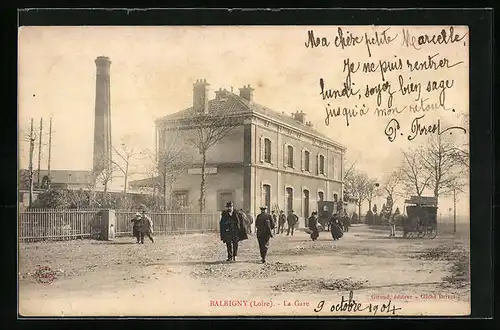 Ma chère petite Marcelle,
Je ne puis rentrer
lundi, soyez bien sage
jusqu'à mon retour
P. Forest
BALBIGNY (Loire). - La Gare
Giraud, éditeur - Cliché
9 octobre 1904